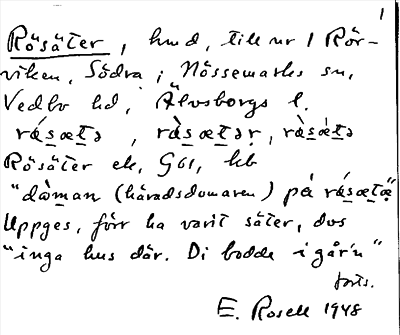 1
Rösäter, hmd, till nr 1 Rör-
viken, Södra; Nössemarks sn,
Vedbo hd, Älvsborgs l.
rá̀sæ̱ṯə, rà̱sæ̱ṯər̥, rà̱sæ̱ṯə
Rösäter ek, G61, hb
"dò̱man (häradsdomaren) på rá̱sæ̱ṯæ̣"
Uppges, förr ha varit säter, dvs
"inga hus där. Di bodde i går'n"
forts.
E. Rosell 1948